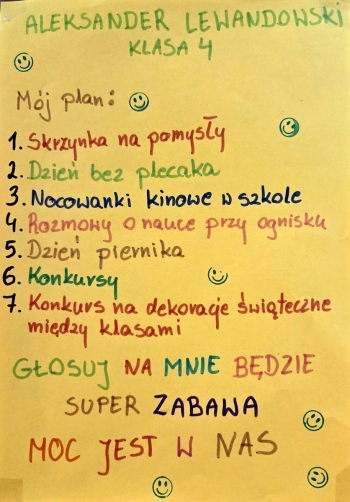 ALEKSANDER LEWANDOWSKI
KLASA 4
Mój plan:
1. Skrzynka na pomysły
2. Dzień bez plecaka
3. Nocowanki kinowe w szkole
4. Rozmowy o nauce przy ognisku
5. Dzień piernika
6. Konkursy
7. Konkurs na dekoracje świąteczne
między klasami
GŁOSUJ NA MNIE BĘDZIE
SUPER ZABAWA
MOC JEST W NAS